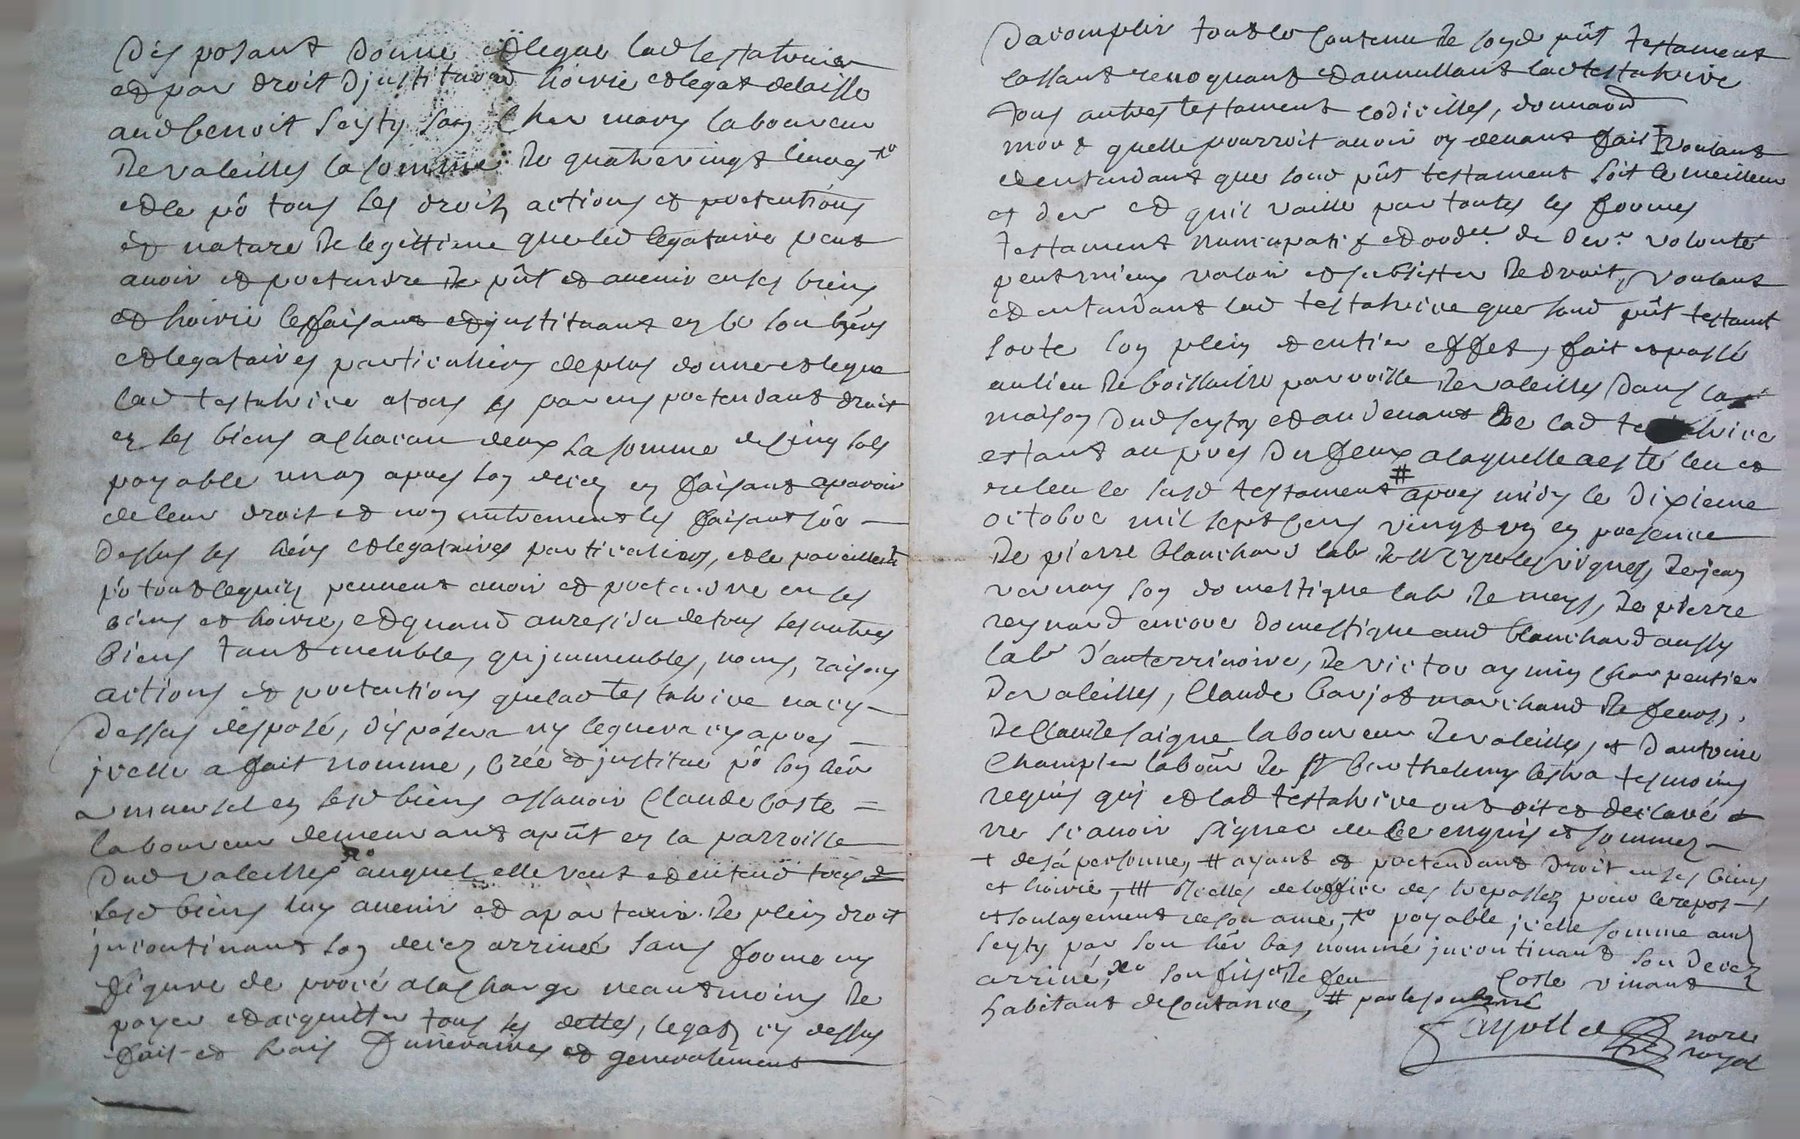 Disposant donne et legue lad testatrice
et par droit djnstitution hoirie et legat delaisse
aud benoit seyty son cher mary laboureur
de valeilles la somme de quatrevingt livres
et le po tous les droits actions et pretentions
et nature de legittime que led legataire peut
avoir et pretendre de pnt et avenir en ses biens
et hoirie le faisant et jnstituant en ce son hers
et legataires particuliers de plus donne et legue
lad testatrice a tous ses parens pretendant droit
en ses biens a chacun deux la somme de cinq sols
payable un an apres son deces en faisant aparoir
de leur droit et non autrement les faisant
dessus ses hers et legataires particuliers, et le
po tout ce quils peuvent avoir et pretendre en ses
biens et hoirie, et quand au residu de tous ses autres
biens tant meubles, qu jmmeubles, noms, raisons
actions et pretentions que lad testatrice na cy
dessus disposé, disposera ny leguera cy apres
jcelle a fait nomme, créé et jnstitue po son her
universel en sesd biens assavoir Claude Coste
laboureur demeurant a pnt en la parroisse
dud valeilles auquel elle veut et entend tous
sesd biens luy avenir et apartenir de plein droit
jncontinant son deces arrivée sans forme ny
figure de procé a la charge neantmoins de
payer et acquitter tous ses dettes, legats cy dessus
fait et frais funeraires et generalement
Dacomplir tout le contenu de son pnt testament
cassant revoquant et annullant lad testatrice
tous autres testament codicilles, donnaon
mort quelle pourroit avoir cy devant fait voulant
et entendant que sond pnt testament soit le meilleur
et der et quil vaille par toutes les formes
testament nuncupatif et ord.re de der.re volonté
peut mieux valoir et subsister de droit, voulant
et entendant lad testatrice que sond pnt testamt
sorte son plein et entier effet, fait et passé
au lieu de boissailre parroisse de valeilles dans la
maison dud seyty et au devant de lad te trice
estant au pres du feux a laquelle a esté leu et
releu le susd testament # apres midy le dixieme
octobre mil sept cens vingt un en presence
de pierre blanchard lab de St Cyr les vignes, de jean
vernay son domestique lab de meys, de pierre
reynard encore domestique aud blanchard aussy
lab d'auterrivoire, de victor aymin charpentier
de valeilles, Claude barjot marchand de feurs,
de Claude saigne laboureur de valeilles, et d'antoine
Champier labour de St Barthelemy lestra tesmoins
requis qui et lad testatrice ont dit et declaré
ne scavoir signer de ce enquis et sommez
+ de sa personne, # ayant et pretendant droit en ses biens
et hoirie, # dicelles de loffice des trepassez pour le repos
et soulagement de son ame, payable jcelle somme aud
seyty par son her bas nommé jncontinant son decez
arrivé, son fils de feu Coste vivant
habitant de Coutance, # par le soubsne
nore
royal